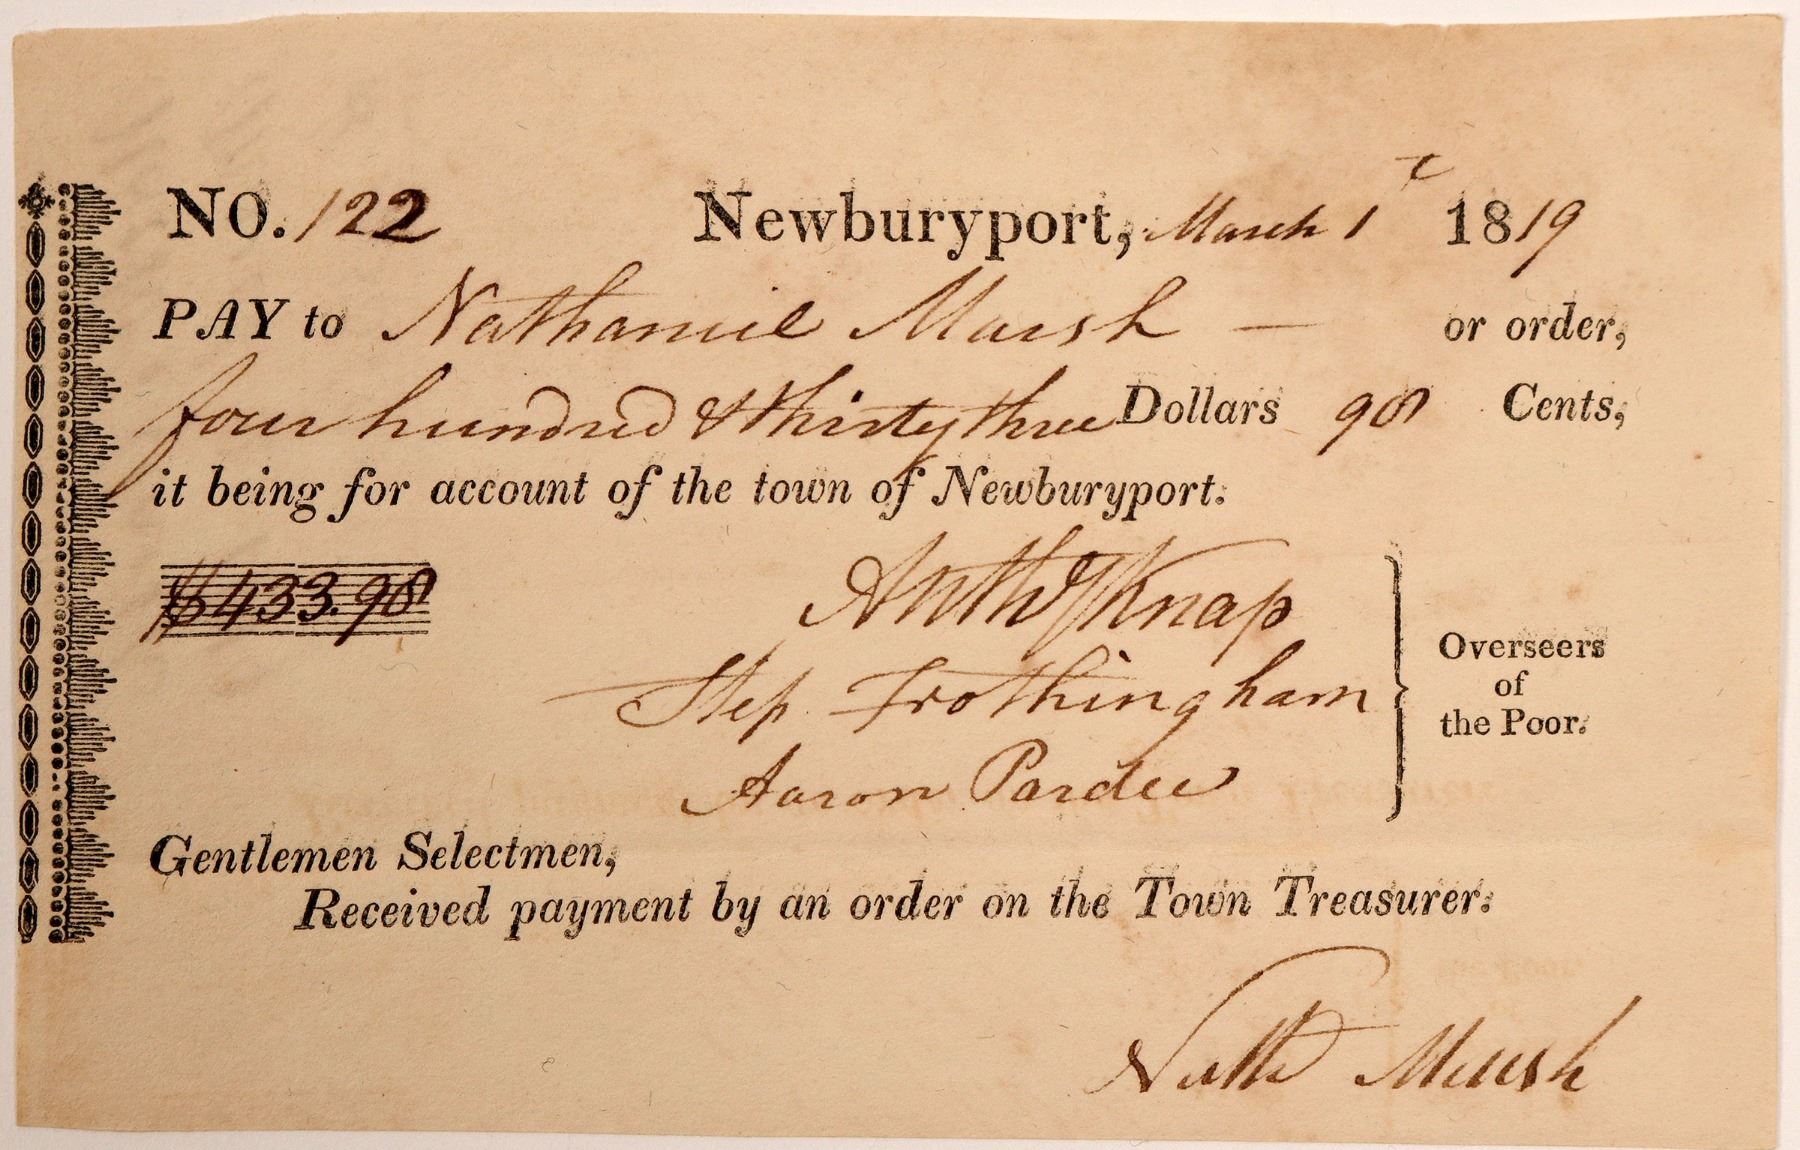 NO. 122 Newburyport, March 1st 1819
PAY to Nathaniel Marsh — or order,
four hundred & thirty three Dollars 98 Cents,
it being for account of the town of Newburyport.
$433.98
Knap
Step Frothingham
Aaron Pardee
Overseers
of
the Poor.
Gentlemen Selectmen,
Received payment by an order on the Town Treasurer.
Nathl Marsh